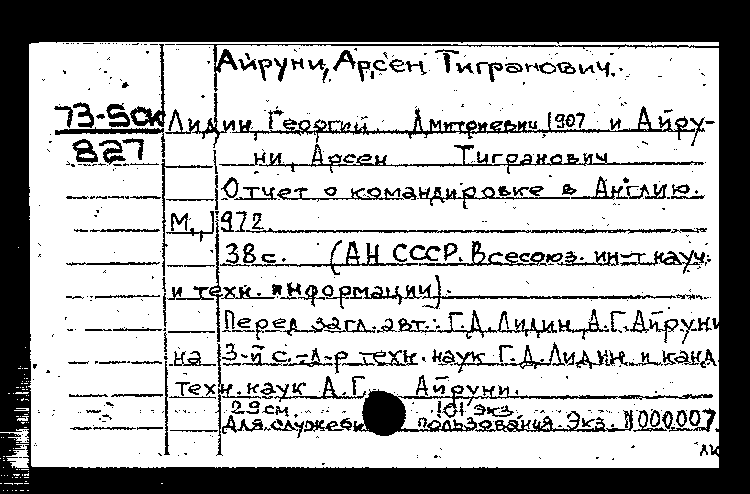 Айруни, Арсен Тигранович.
73-5СК
827
Лидин, Георгий Дмитриевич 1907 и Айру-
ни, Арсен Тигранович
Отчет о командировке в Англию.
М., 1972.
38 с. (АН СССР. Всесоюз. ин-т науч.
и техн. информации).
Перед загл. авт.: Г.Д. Лидин, А.Г. Айруни
на 3-й с. - д-р техн. наук Г.Д. Лидин и канд.
техн. наук А.Г. Айруни.
29 см. 101 экз.
Для служебн пользования. Экз. №000007.
лк